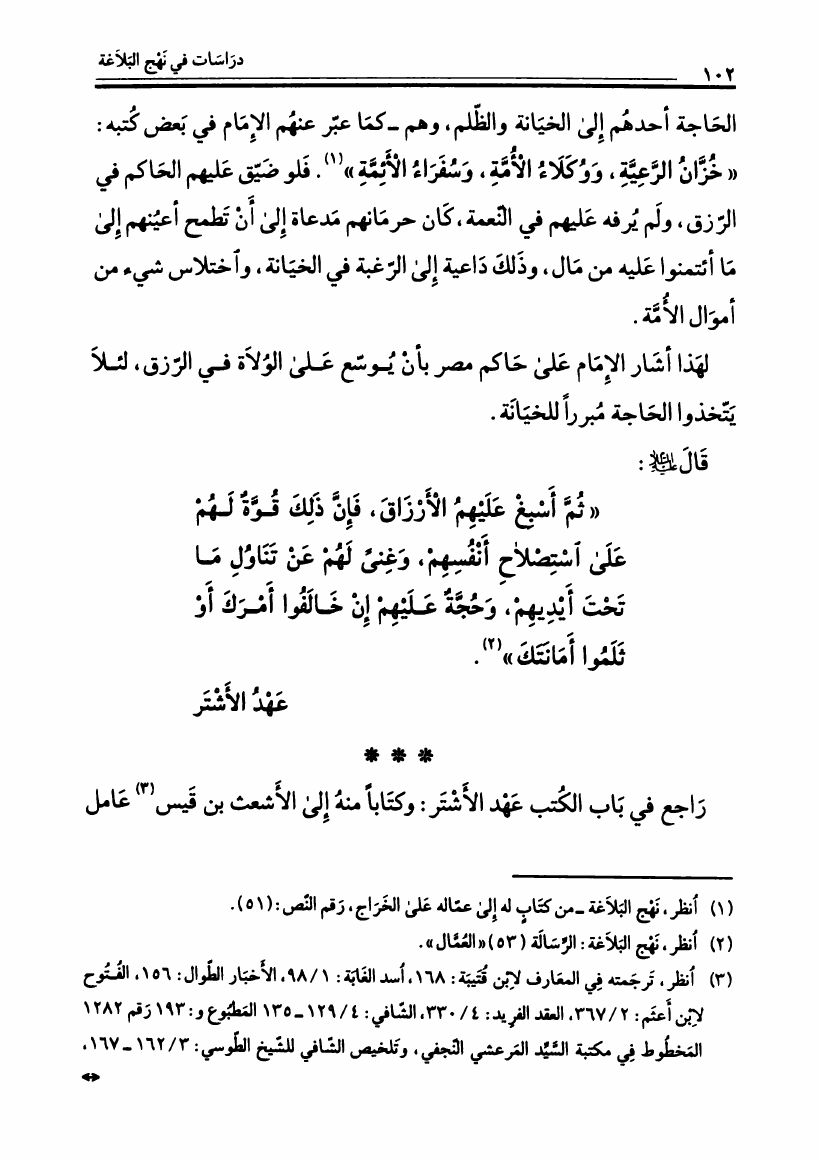 ١٠٢
درَاسَات في نَهْج البَلاَغة
الحَاجة أحدهُم إلىٰ الخيَانة والظّلم، وهم ـ كمَا عبّر عنهُم الإمَام في بَعض كُتبه :
« خُزَّانُ الرَّعِيَّةِ، وَوُكَلَاءُ الْأُمَّةِ، وَسُفَرَاءُ الْأَئِمَّةِ »(١). فلو ضيّق عَليهم الحَاكم في
الرّزق، ولَم يُرفه عَليهم في النّعمة، كَان حرمَانهم مَدعاة إلىٰ أنْ تَطمح أعيُنهم إلىٰ
مَا أئتمنوا عَليه من مَال، وذَلكَ دَاعية إلىٰ الرّغبة في الخيَانة، وٱختلاس شيء من
أموَال الأُمَّة .
لهَذا أشَار الإمَام عَلىٰ حَاكم مصر بأنْ يُـوسّع عَـلىٰ الوُلاَة فـي الرّزق، لئـلاَ
يَتّخذوا الحَاجة مُبرراً للخيَانَة .
قَالَ ﷷ :
« ثُمَّ أَسْبِغْ عَلَيْهِمُ الْأَرْزَاقَ، فَإِنَّ ذَلِكَ قُـوَّةٌ لَـهُمْ
عَلَىٰ ٱسْتِصْلَاحِ أَنْفُسِهِمْ، وَغِنىً لَهُمْ عَنْ تَنَاوُلِ مَـا
تَحْتَ أَيْدِيهِمْ، وَحُجَّةٌ عَـلَيْهِمْ إِنْ خَـالَفُوا أَمْـرَكَ أَوْ
ثَلَمُوا أَمَانَتَكَ »(٢).
عَهْدُ الأَشْتَر
* * *
رَاجع في بَاب الكُتب عَهْد الأَشْتَر : وكتَاباً منهُ إلىٰ الأَشعث بن قَيس(٣) عَامل
(١) أنظر، نَهْج البَلاَغة ـ من كتَابٍ له إلىٰ عمّاله عَلىٰ الخَرَاج، رَقم النّص : (٥١).
(٢) أنظر، نَهْج البَلاَغة : الرِّسَالَة (٥٣) « العُمَّال ».
(٣) أنظر، تَرجَمته فِي المعَارف لاِبْن قُتَيبَة : ١٦٨، أُسد الغَابَة : ٩٨/١، الأَخبَار الطِّوال : ١٥٦، الفُـتُوح
لاِبْن أَعثَم : ٣٦٧/٢، العقد الفَريد : ٣٣٠/٤، الشَّافي : ١٢٩/٤ ـ ١٣٥ المَطبُوع و : ١٩٣ رَقم ١٢٨٢
المَخطُوط فِي مكتبَة السَّيِّد المَرعشي النَّجفي، وتَلخيص الشَّافي للشَّيخ الطُّوسي : ١٦٢/٣ ـ ١٦٧،